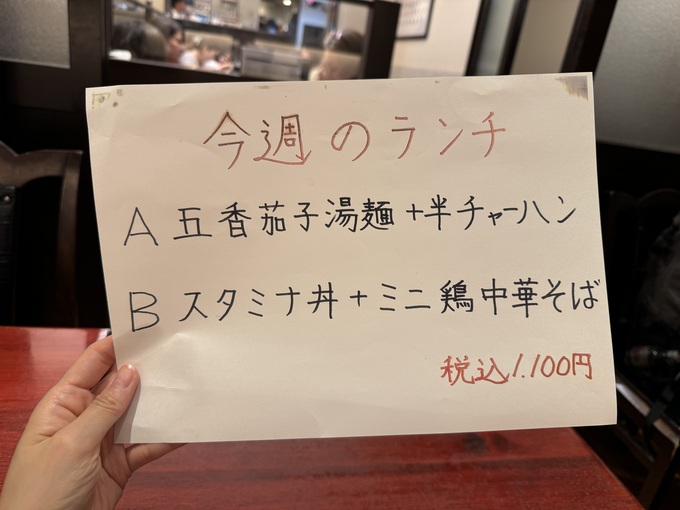 今週のランチ
A 五香茄子湯麺+半チャーハン
B スタミナ丼+ミニ鶏中華そば
税込1.100円